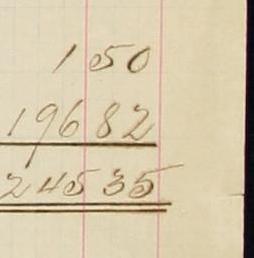 1 50
196 82
245 35